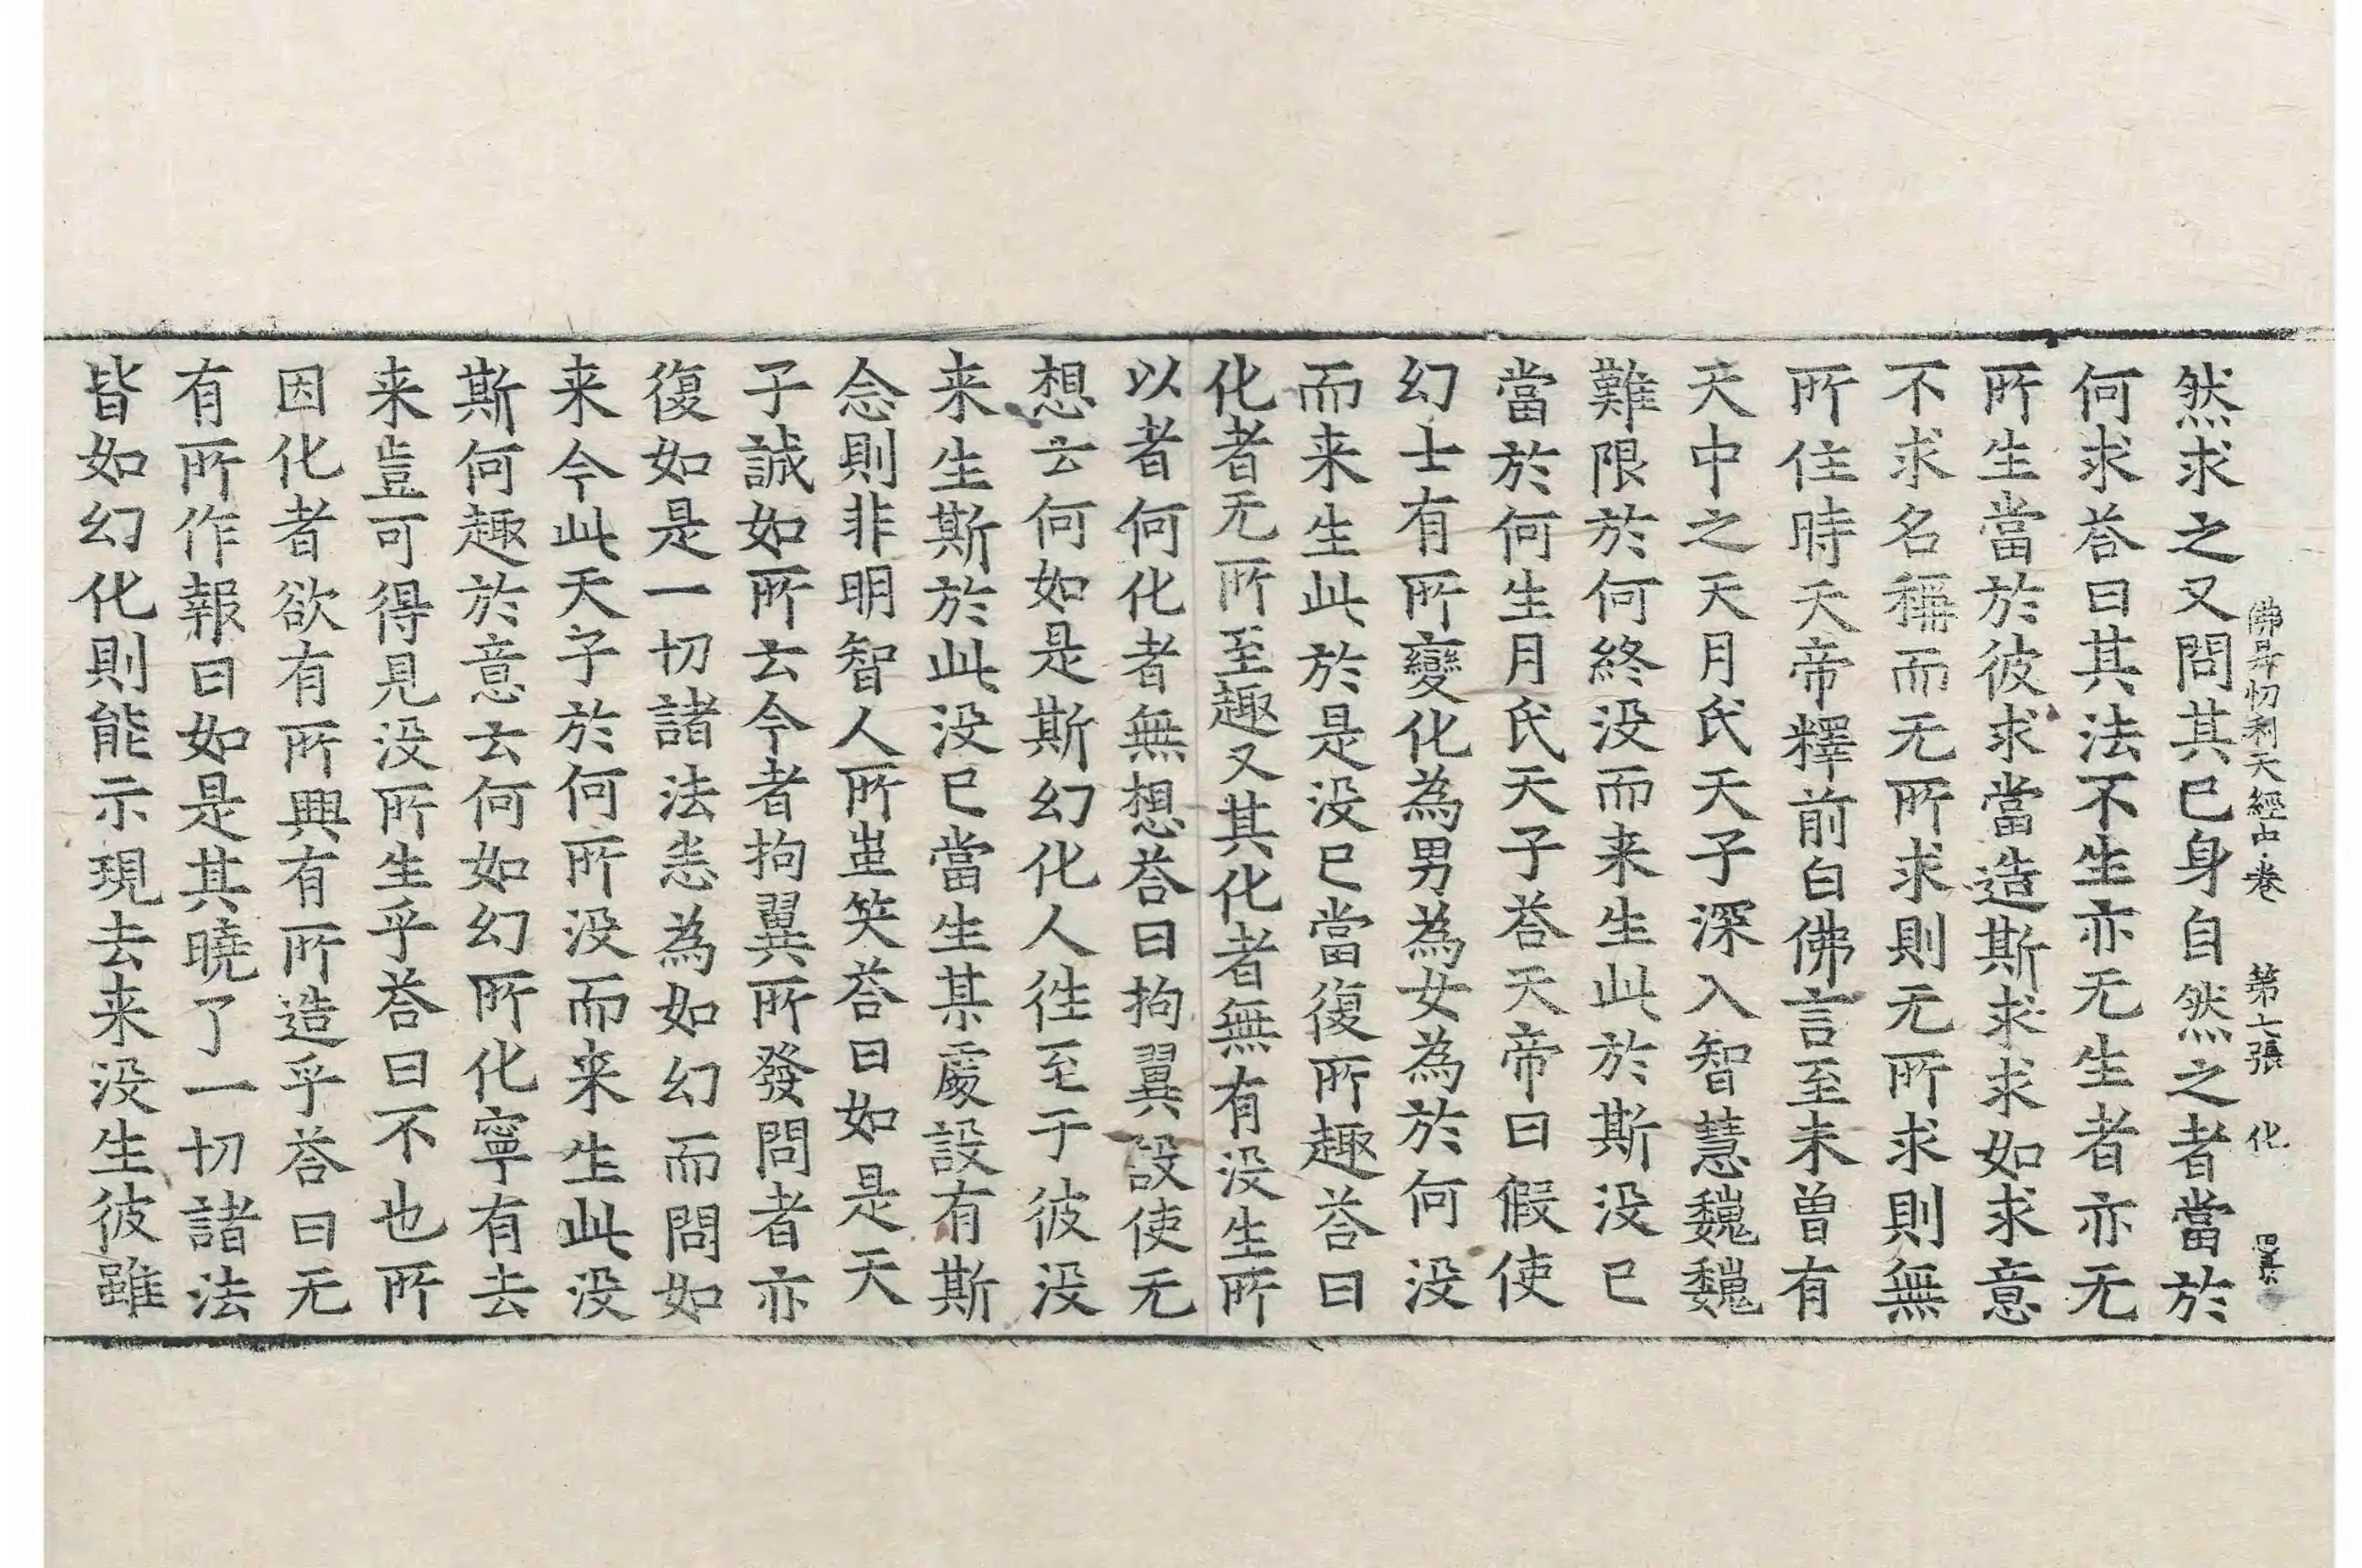 佛昇忉利天經中卷 第七張 化
然求之又問其已身自然之者當於
何求荅曰其法不生亦无生者亦无
所生當於彼求當造斯求求如求意
不求名稱而无所求則无所求則無
所住時天帝釋前白佛言至未曾有
天中之天月氏天子深入智慧巍巍
難限於何終没而来生此於斯没已
當於何生月氏天子荅天帝曰假使
幻士有所變化為男為女為於何没
而来生此於是没已當復所趣荅曰
化者无所至趣又其化者無有没生所
以者何化者無想荅曰拘翼設使无
想云何如是斯幻化人徃至于彼没
来生斯於此没已當生某處設有斯
念則非明智人所蚩笑荅曰如是天
子誠如所云今者拘翼所發問者亦
復如是一切諸法恙為如幻而問如
来今此天子於何所没而来生此没
斯何趣於意云何如幻所化寧有去
来豈可得見没所生乎荅曰不也所
因化者欲有所興有所造乎荅曰无
有所作報曰如是其曉了一切諸法
皆如幻化則能示現去来没生彼雖